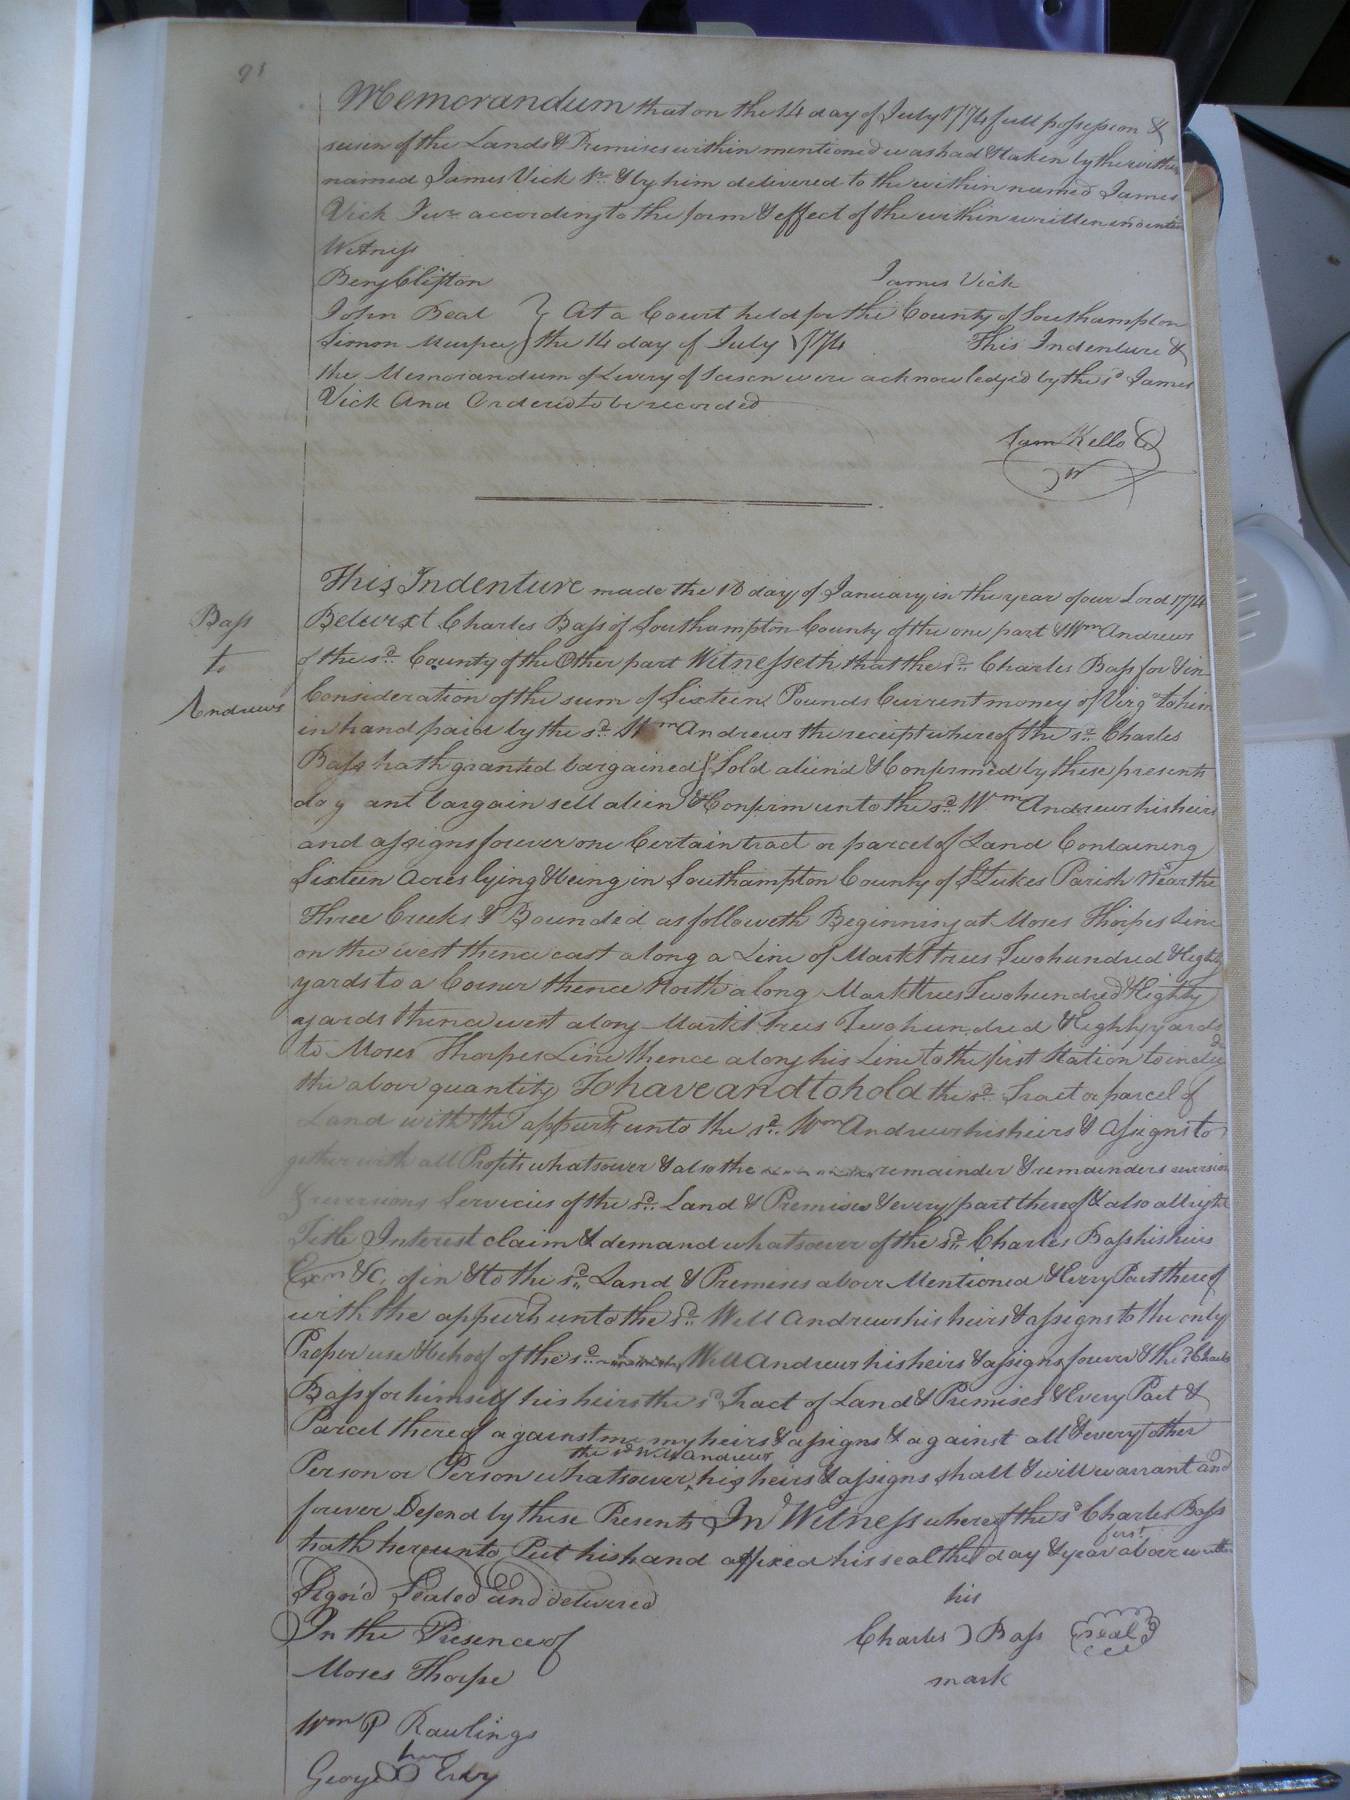 Memorandum that on the 14 day of July 1774 full possession &
seisin of the Lands & Premises within mentioned was had & taken by the within
named James Vick Sr. & by him delivered to the within named James
Vick Junr according to the form & effect of the within written indenture
Witness
Benj Clifton James Vick
John Beal } At a Court held for the County of Southampton
Simon Murfee } the 14 day of July 1774 This Indenture &
the Memorandum of Livery of Seisen were acknowledged by the sd James
Vick And Ordered to be recorded
Sam Kello
Bass
to
Andrews
This Indenture made the 18 day of January in the year of our Lord 1774
Betwixt Charles Bass of Southampton County of the one part & Wm Andrews
of the sd. County of the Other part Witnesseth that the sd. Charles Bass for & in
Consideration of the sum of Sixteen Pounds Current money of Virga to him
in hand paid by the sd. Wm Andrews the receipt whereof the sd. Charles
Bass hath granted bargained & Sold alien'd & Confirmed by these presents
do g ant bargain sell alien & Confirm unto the sd. Wm Andrews his heirs
and assigns forever one Certain tract or parcel of Land Containing
Sixteen Acres lying & being in Southampton County of St Lukes Parish Near the
Three Creeks & Bounded as followeth Beginning at Moses Thorpes Line
on the west thence east along a Line of Markt trees Two hundred & Eighty
yards to a Corner thence North along Markt trees Two hundred & Eighty
yards thence west along Markt Trees Two hundred & Eighty yards
to Moses Thorpes Line thence along his Line to the first Station to include
the above quantity To have and to hold the sd. Tract or parcel of
Land with the appurts unto the sd. Wm Andrews his heirs & Assigns to
gether with all Profits whatsover & also the remainder & remainders revirsion
& revirsions Services of the sd. Land & Premises & every part thereof & also all right
Title Interest claim & demand whatsoever of the sd. Charles Bass his heirs
Exrs &c, of in & to the sd. Land & Premises above Mentioned & Every Part thereof
with the appurts unto the sd. Will Andrews his heirs & assigns to the only
Proper use & behoof of the sd. Will Andrews his heirs & assigns forever & the sd Charles
Bass for himself his heirs the sd Tract of Land & Premises & Every Part &
Parcel thereof against me my heirs & assigns & against all & every other
the sd Will Andrews
Person or Person whatsover ^ his heirs & assigns shall & will warrant and
forever Defend by these Presents In Witness whereof the sd Charles Bass
first
hath hereunto Put his hand affixed his seal the day & year above written
Sign'd Sealed and delivered his
In the Presence of Charles ) Bass seal
Moses Thorpe mark
Wm P Rawlings
George Ervy